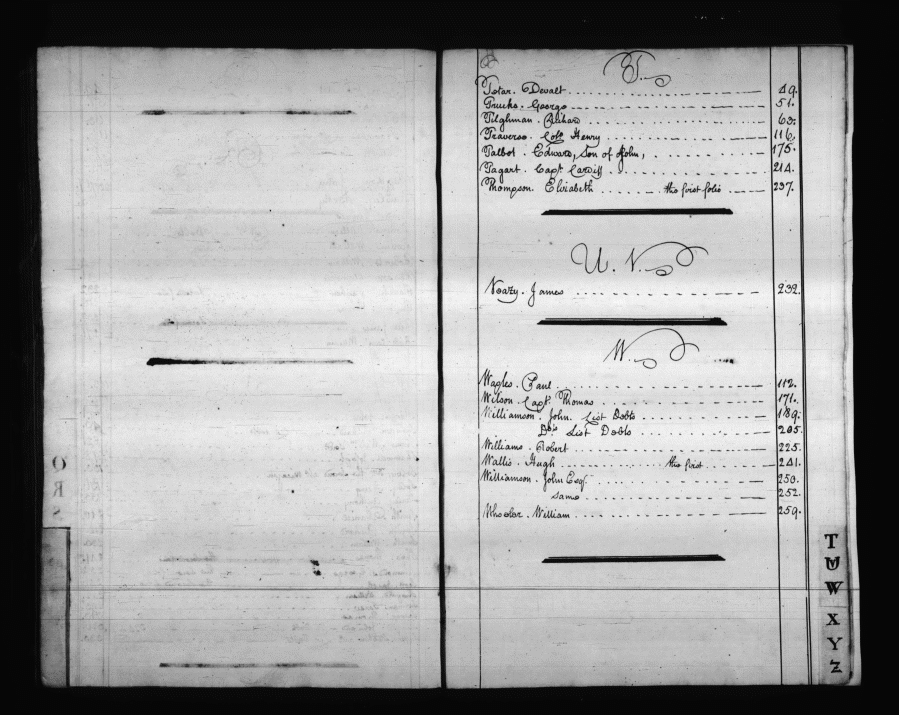 T.
Totar. Devalt 49.
Trucks. George 51.
Tilghman. Richard 63.
Traverse. Colo. Henry 116.
Talbot. Edward, Son of John, 175.
Tagart. Capt. Cardiff 214.
Thompson. Elviabeth the first folio 237.
U. V.
Veazy. James 232.
W.
Wagles. Paul 112.
Wilson. Capt. Thomas 171.
Williamson. John. List Debts 189.
Do. List Debts 205.
Williams. Robert 225.
Wallis. Hugh the first 241.
Williamson. John Esqr. 250.
same 252.
Wheeler. William 259.
O
R
S
T
U
W
X
Y
Z